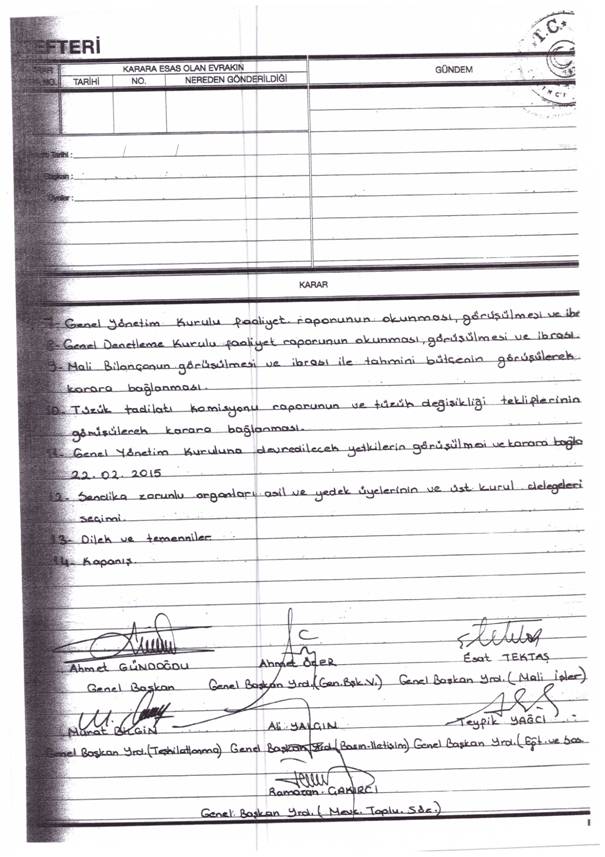 EFTERİ
T.C.
KARARA ESAS OLAN EVRAKIN
GÜNDEM
NO. TARİHİ NO. NEREDEN GÖNDERİLDİĞİ
Tarihi : / /
Başkan :
Üyeler :
KARAR
7- Genel Yönetim Kurulu faaliyet raporunun okunması, görüşülmesi ve ibr
8- Genel Denetleme Kurulu faaliyet raporunun okunması, görüşülmesi ve ibrası.
9- Mali Bilançonun görüşülmesi ve ibrası ile tahmini bütçenin görüşülerek
karara bağlanması.
10- Tüzük tadilatı komisyonu raporunun ve tüzük değişikliği tekliplerinin
görüşülerek karara bağlanması.
11- Genel Yönetim Kuruluna devredilecek yetkilerin görüşülmesi ve karara bağla
22.02.2015
12- Sendika zorunlu organları asil ve yedek üyelerinin ve üst kurul delegeleri
seçimi.
13- Dilek ve temenniler
14- Kapanış.
Ahmet GÜNDOĞDU Ahmet ÖZER Esat TEKTAŞ
Genel Başkan Genel Başkan Yrd.(Gen.Bşk.V.) Genel Başkan Yrd.( Mali İşler)
Murat BİLGİN Ali YALÇIN Teyfik YAĞCI
Genel Başkan Yrd.(Teşkilatlanma) Genel Başkan Yrd.(Basın-İletişim) Genel Başkan Yrd.( Eğt. ve Sos
Ramazan ÇAKIRCI
Genel Başkan Yrd.( Mevz. Toplu. Söz.)